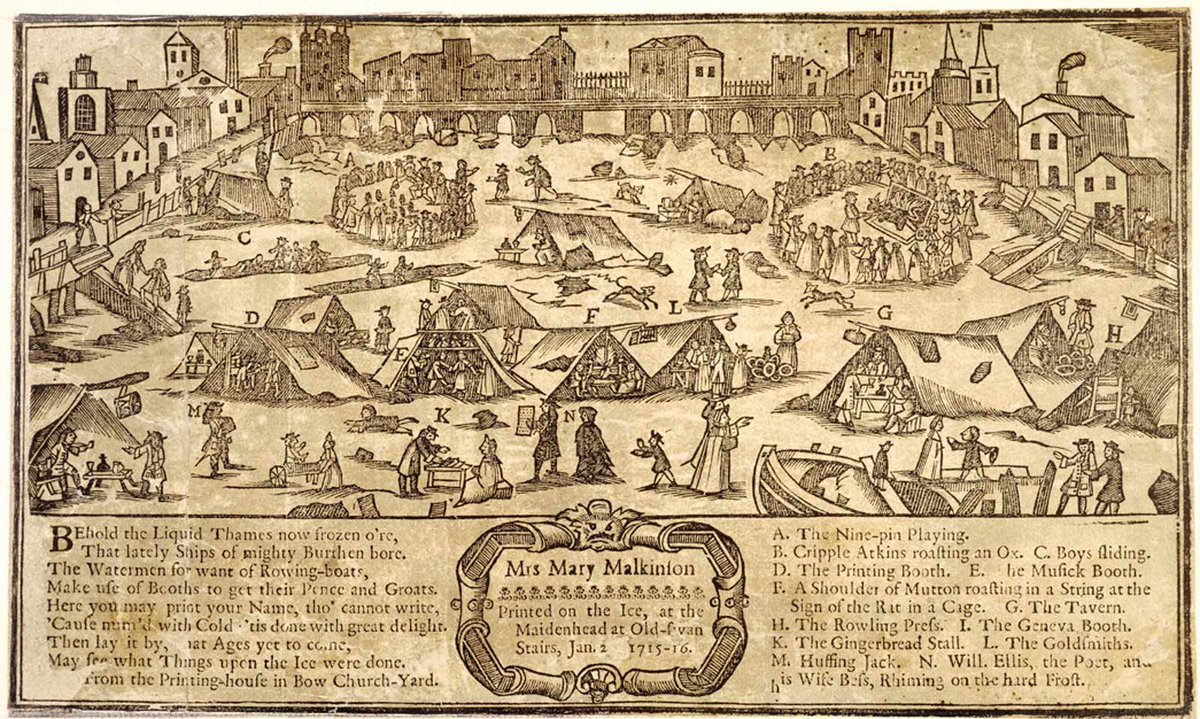 A
B
C
D
E
F
L
G
H
K
M
N
BEhold the Liquid Thames now frozen o're,
That lately Ships of mighty Burthen bore.
The Watermen for want of Rowing-boats,
Make uſe of Booths to get their Pence and Groats.
Here you may print your Name, tho' cannot write,
'Cauſe num'd with Cold : 'tis done with great delight.
Then lay it by, hat Ages yet to come,
May ſee what Things upon the Ice were done.
From the Printing-houſe in Bow Church-Yard.
Mrs Mary Malkinſon
Printed on the Ice, at the
Maidenhead at Old-ſwan
Stairs, Jan. 2 1715-16.
A. The Nine-pin Playing.
B. Cripple Atkins roaſting an Ox. C. Boys ſliding.
D. The Printing Booth. E. he Muſick Booth.
F. A Shoulder of Mutton roaſting in a String at the
Sign of the Rat in a Cage. G. The Tavern.
H. The Rowling Preſs. I. The Geneva Booth.
K. The Gingerbread Stall. L. The Goldſmiths.
M. Huffing Jack. N. Will. Ellis, the Poet, and
his Wife Beſs, Rhiming on the hard Froſt.